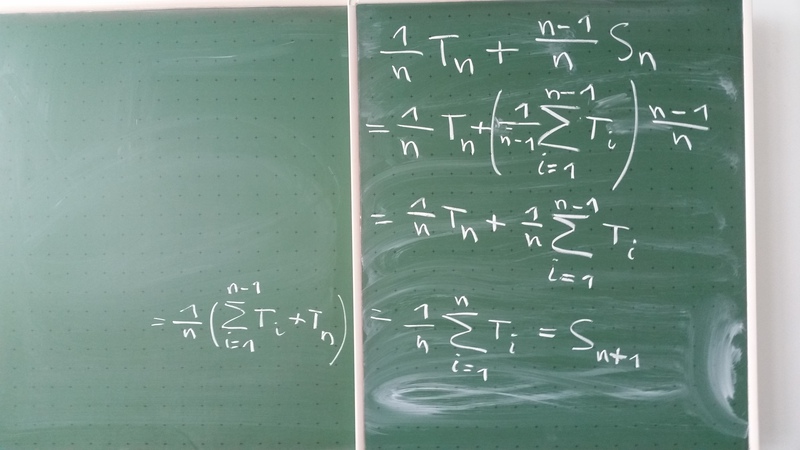 1/n T_n + n-1/n S_n
= 1/n T_n + (1/n-1 ∑_{i=1}^{n-1} T_i) n-1/n
= 1/n T_n + 1/n ∑_{i=1}^{n-1} T_i
= 1/n (∑_{i=1}^{n-1} T_i + T_n) = 1/n ∑_{i=1}^{n} T_i = S_{n+1}